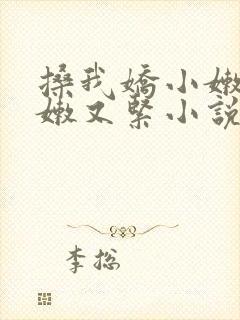 搡我嬌小嫩
嫩又緊小說
李總